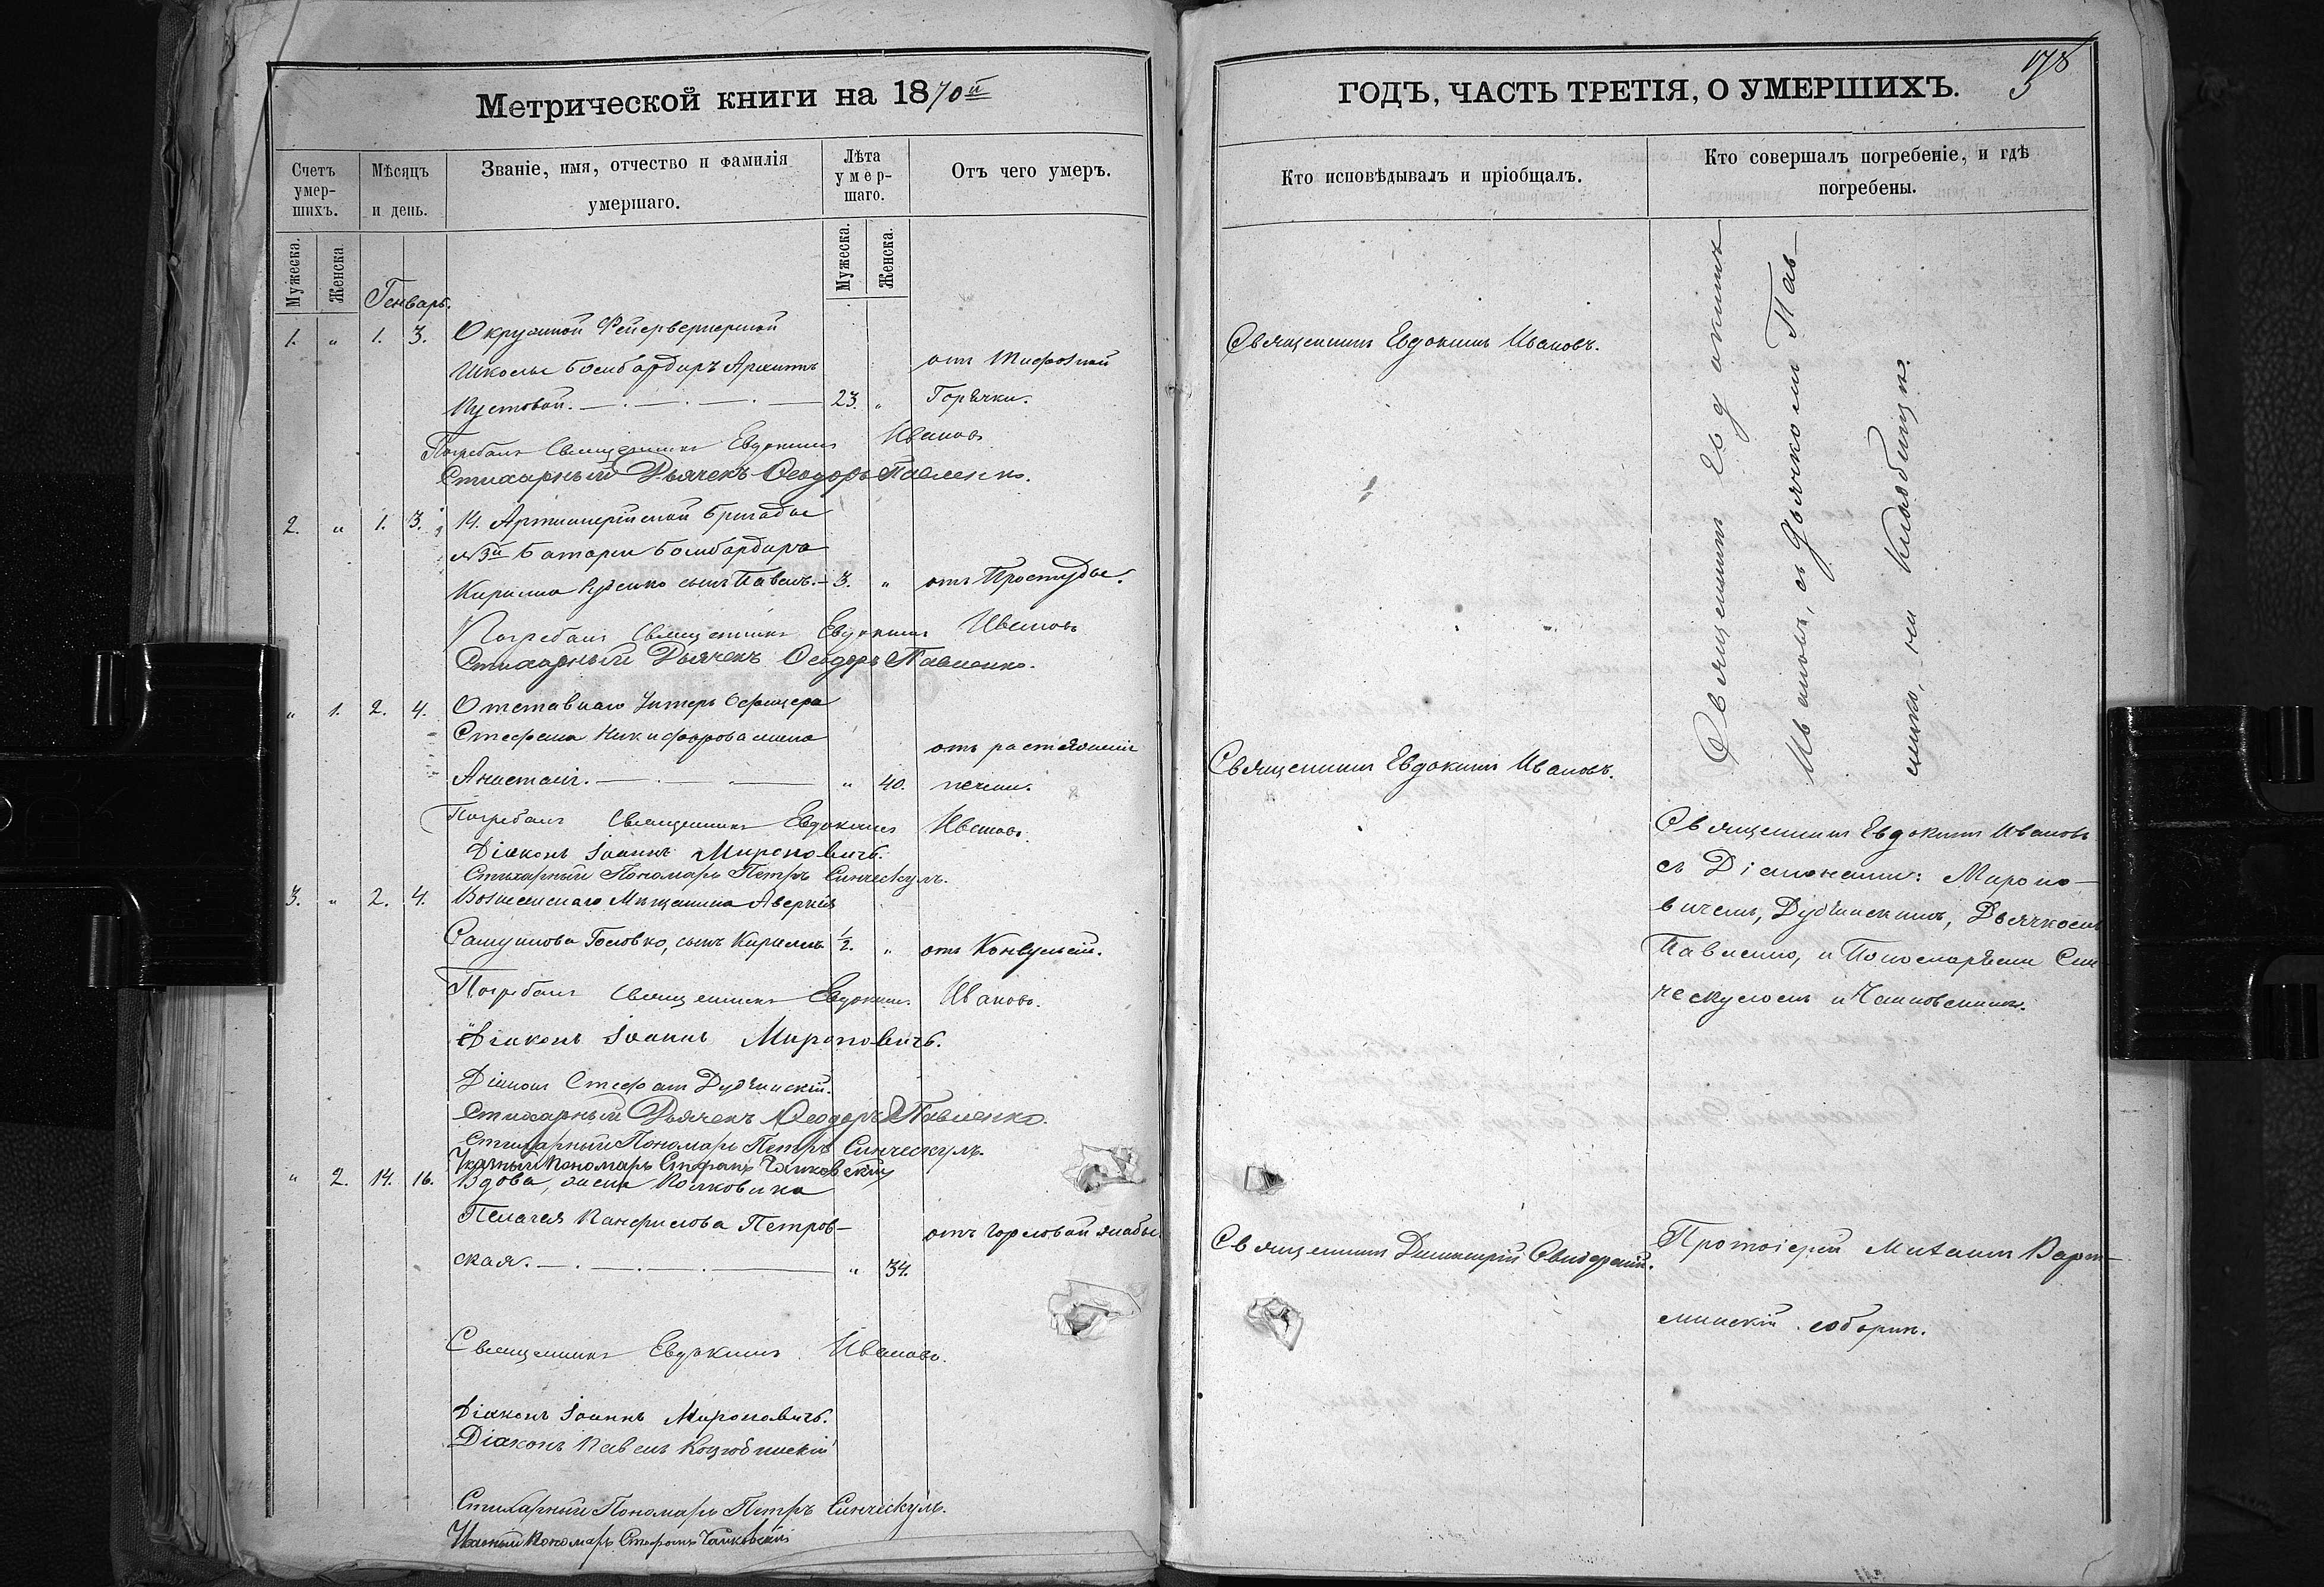 Метрической книги на 1870й
Счетъ умер-шихъ.
Мѣсяцъ и день.
Званіе, имя, отчество и фамилія умершаго.
Лѣта умер-шаго.
Отъ чего умеръ.
Мужеска.
Женска
Мужеска.
Женска.
Генварь.
1. " 1. 3. Окружной Фейерверкерской
Школы Бомбардиръ Архипъ
отъ Тифозной
Кустовой. 23. " Горячки.
Погребалъ Священникъ Евдокимъ Ивановъ
Стихарный Дьячекъ Ѳеодоръ Павленко.
2. " 1. 3. 14. Артилерійской бригады
3й Батареи Бомбардира
Кирилла сынъ Павелъ. 3. " отъ Простуды.
Погребалъ Священникъ Евдокимъ Ивановъ
Стихарный Дьячекъ Ѳеодоръ Павленко.
" 1. 2. 4. Отставнаго Унтеръ Офицера
Стефана Никифорова жена
отъ
. " 40. печени.
Погребалъ Священникъ Евдокимъ Ивановъ.
Діаконъ Іоаннъ Мироновичъ.
Стихарный Пономарь Петръ Синческулъ.
3. " 2. 4. Вознесенскаго Мѣщанина Аверкія
Головко, сынъ Кириллъ ½. " отъ Конвульсій.
Погребалъ Священникъ Евдокимъ Ивановъ.
Діаконъ Іоаннъ Мироновичъ.
Діаконъ Стефанъ Дубчинскій.
Стихарный Дьячекъ Ѳеодоръ Павленко.
Стихарный Пономарь Петръ Синческулъ.
Указный Пономарь Стефанъ Чайковскій
" 2. 14. 16. Вдова, жена Полковника
Пелагея Панфилова Петров-
отъ горловой жабы.
ская. " 34.
Священникъ Евдокимъ Ивановъ.
Діаконъ Іоаннъ Мироновичъ.
Діаконъ Павелъ Коцюбинскій
Стихарный Пономарь Петръ Синческулъ.
Указный Пономарь Стефанъ Чайковскій
ГОДЪ, ЧАСТЬ ТРЕТІЯ, О УМЕРШИХЪ.
178
Кто исповѣдывалъ и пріобщалъ.
Кто совершалъ погребеніе, и гдѣ
погребены.
Священникъ Евдокимъ Ивановъ.
Священникъ Евдокимъ
Ивановъ, съ Дьячкомъ Пав-
ленко, на Кладбищѣ.
Священникъ Евдокимъ Ивановъ.
Священникъ Евдокимъ Ивановъ
съ Діаконами: Мироно-
вичемъ, Дубчинскимъ, Дьячкомъ
Павленко, и Пономарями Син
ческуломъ и Чайковскимъ.
Священникъ Димитрій
Протоіерей Михаилъ
соборнѣ.